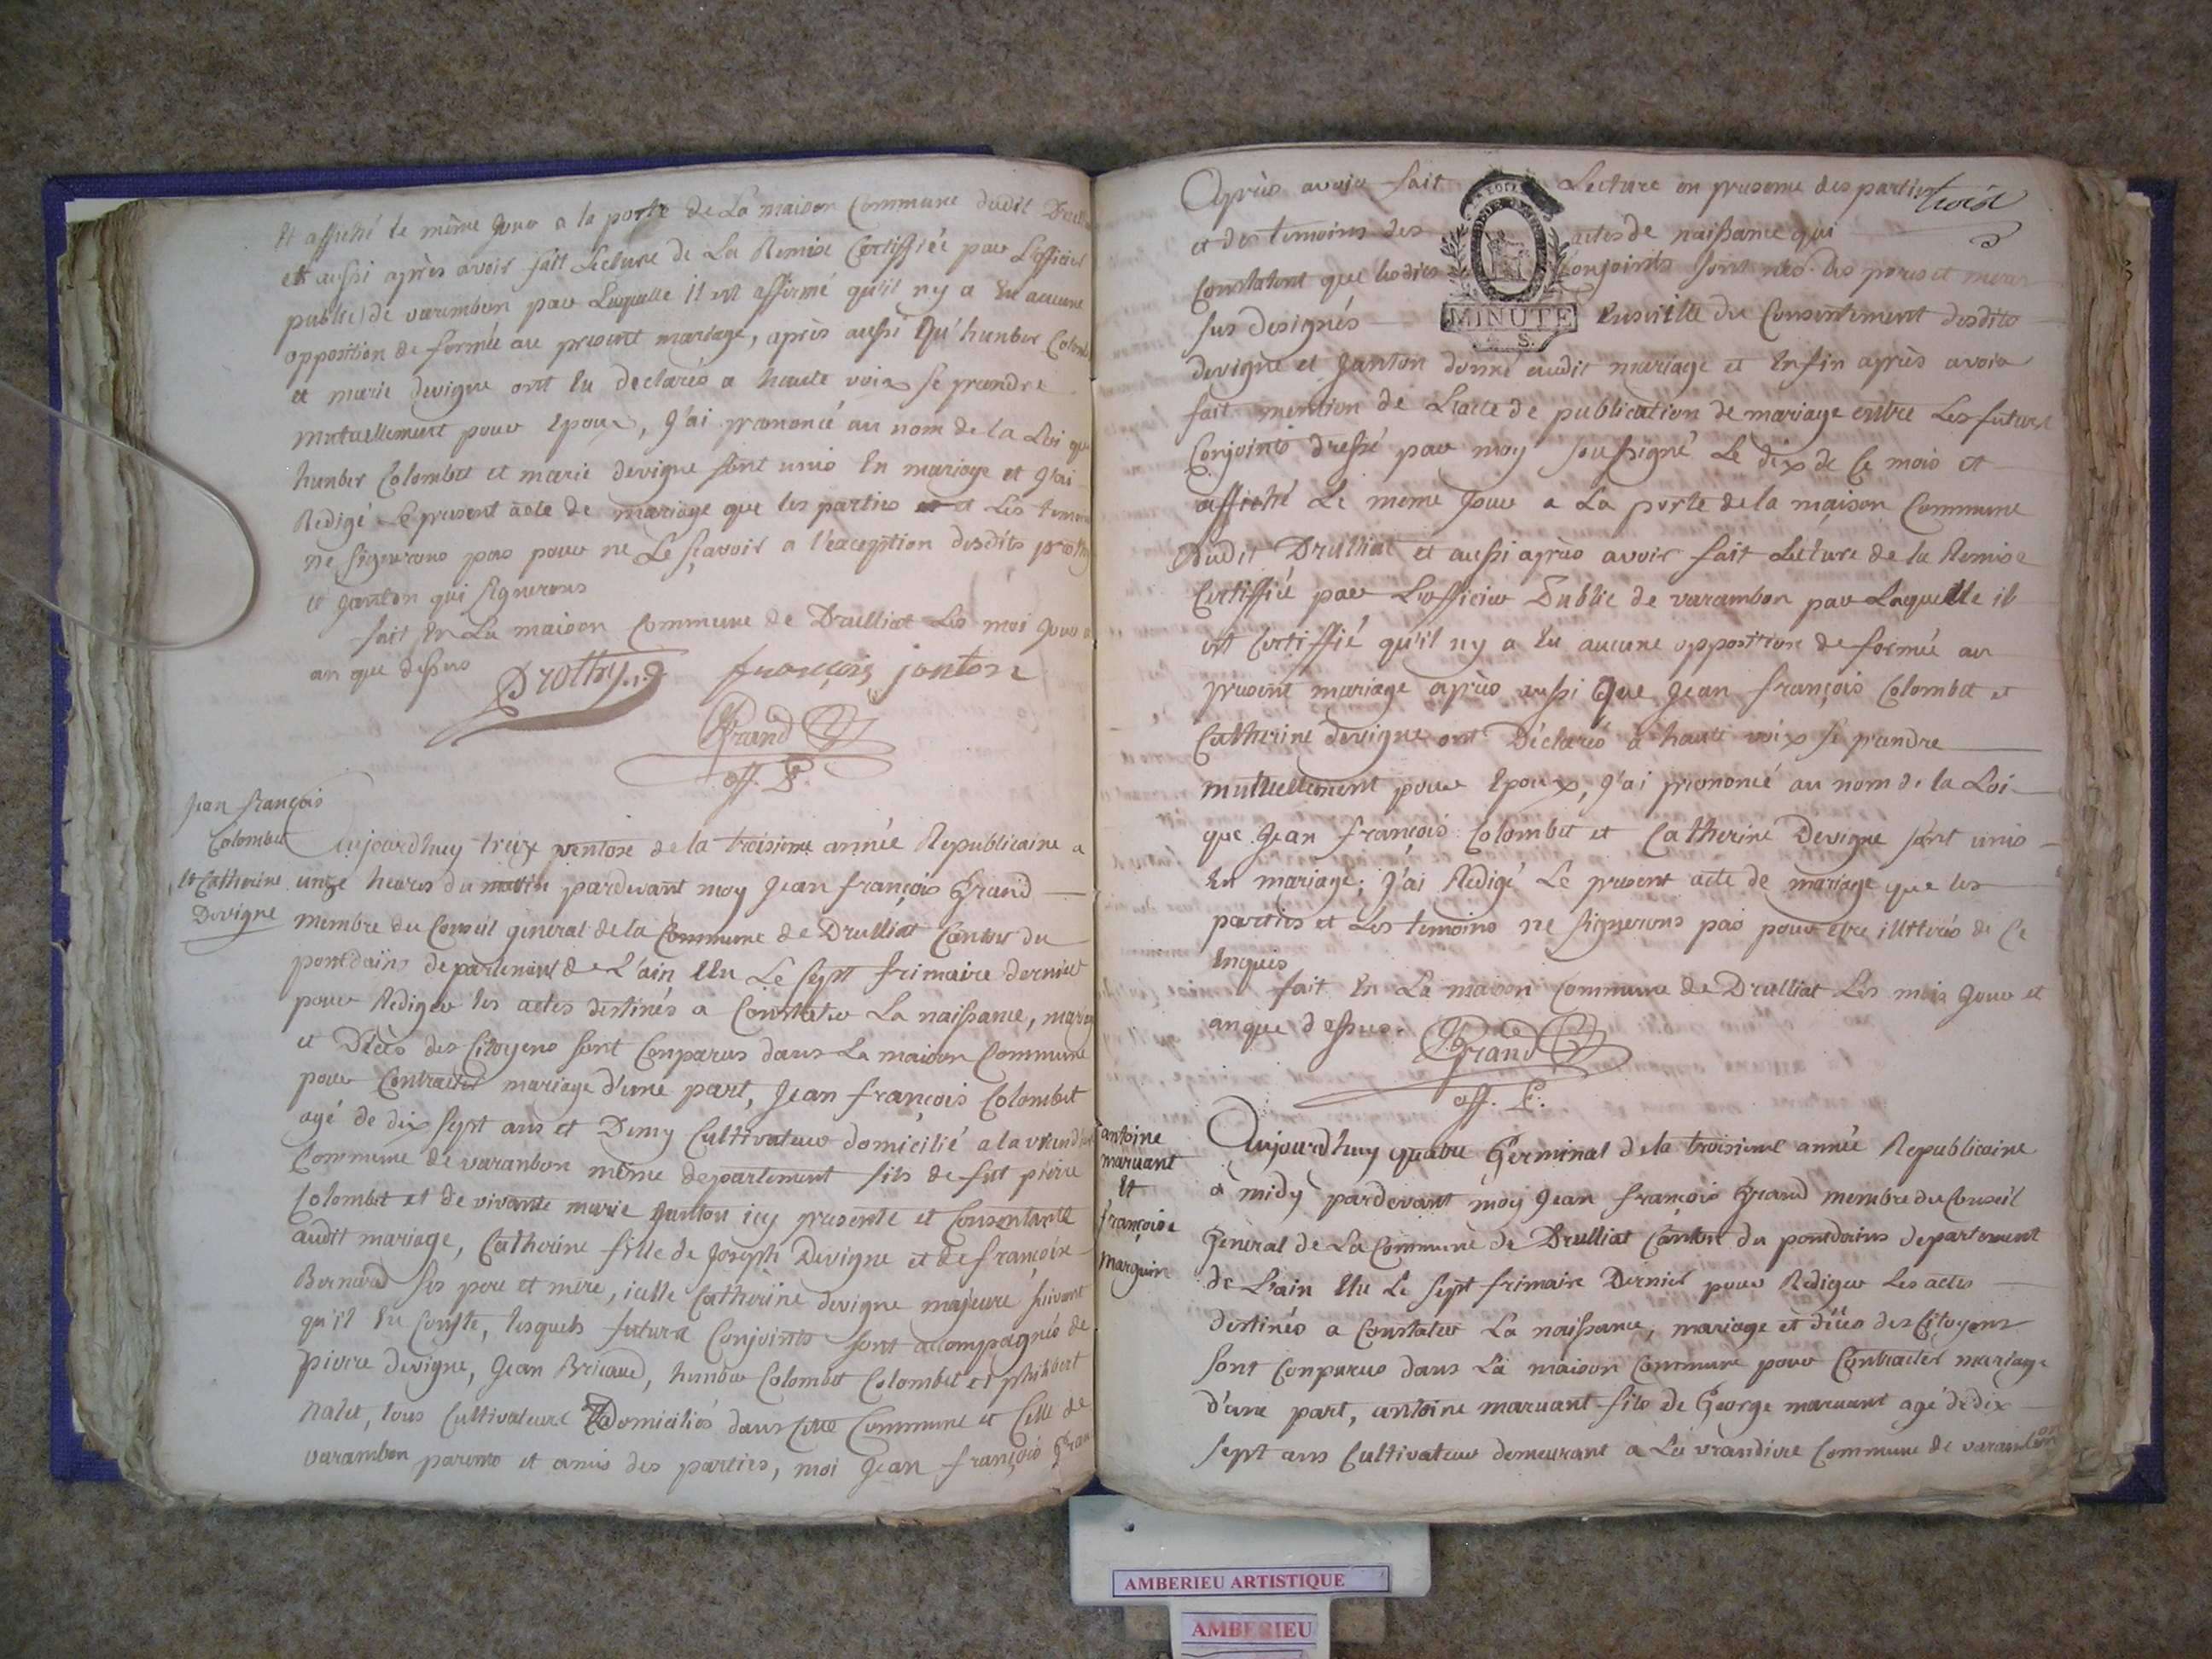 Et affiché le même jour a la porte de La maison Commune dudit
et aussi après avoir fait Lecture de La Remise Certiffiée par L'officier
public de varembon par Laquelle il est affirmé qu'il ny a Eu aucune
opposition de formée au present mariage, après aussi qu'humber
et marie devigne ont Eu declarés a haute voix se prendre
mutuellement pour Epoux, J'ai prononcé au nom de la Loi que
humber Colombet et marie devigne sont unis En mariage et J'ai
Redigé Le present acte de mariage que les parties et Les
ne signerons pas pour ne Le sçavoir a l'exception desdits
et Janton qui signerons
fait En La maison Commune de Drulliat Les moi Jour
an que dessus
françois jonton
Grand
off. P.
Jean françois
Colombet
Et Catherine
Devigne
Aujourdhuy treize ventose de la troisieme année Republicaine a
unze heures du matin pardevant moy Jean françois Grand
membre du Conseil general de la Commune de Drulliat Canton du
pontdains departement de L'ain Elu Le sept frimaire dernier
pour Rediger les actes destinés a Constater La naissance,
et Décès des Citoyens sont Conparus dans La maison Commune
pour Contracter mariage d'une part, Jean françois Colombet
agé de dix sept ans et Demy Cultivateur domicilié a la
Commune de varanbon même departement fils de fut pierre
Colombet et de vivante marie Janton icy presente et Consentante
audit mariage, Catherine fille de Joseph Devigne et de françoise
Bernard ses pere et mere, icelle Catherine devigne majeure suivant
qu'il En Conste, lesquels futurs Conjoints sont accompagnés de
pierre devigne, Jean Bricaud, humber Colombet Colombet et philibert
nalet, tous Cultivateurs domiciliés dans Cette Commune et Celle de
varambon parents et amis des parties, moi Jean françois
Après avoir fait Lecture en presence des parties
et des temoins des actes de naissance qui
Constatent que lesdits Conjoints sont nés des peres et meres
sus designés Ensuitte du Consentement desdits
devigne et Janton donné audit mariage et Enfin après avoir
fait mention de L'acte de publication de mariage entre Les futurs
Conjoints dressé par moy soussigné Le dix de Ce mois et
affiché Le meme Jour a La porte de la maison Commune
dudit Drulliat et aussi après avoir fait Lecture de la Remise
Certiffiée par L'officier Public de varambon par Laquelle il
est Certiffié qu'il ny a Eu aucune opposition de formée au
present mariage après aussi Que Jean françois Colombet et
Catherine devigne ont Déclarés a haute voix se prendre
mutuellement pour Epoux, J'ai prononcé au nom de la Loi
que Jean françois Colombet et Catherine Devigne sont unis
En mariage; J'ai Redigé Le present acte de mariage que les
parties et Les temoins ne signerons pas pour etre illitérés de Ce
Enquis
fait En La maison Commune de Drulliat Les mois Jour et
anque dessus.
Grand
off. P.
MINUTE
S.
antoine
maruant
Et
françoise
marguin
Aujourdhuy quatre Germinal de la troisieme année Republicaine
à midy pardevant moy Jean françois Grand membre du Conseil
General de La Commune de Drulliat Canton du pontdains departement
de L'ain Elu Le sept frimaire Dernier pour Rediger Les actes
destinés a Constater La naissance, mariage et décès des Citoyens
sont Conparus dans La maison Commune pour Contracter mariage
d'une part, antoine maruant fils de George maruant agé de dix
sept ans Cultivateur demeurant a La vrandiere Commune de varambon
AMBERIEU ARTISTIQUE
AMBERIEU